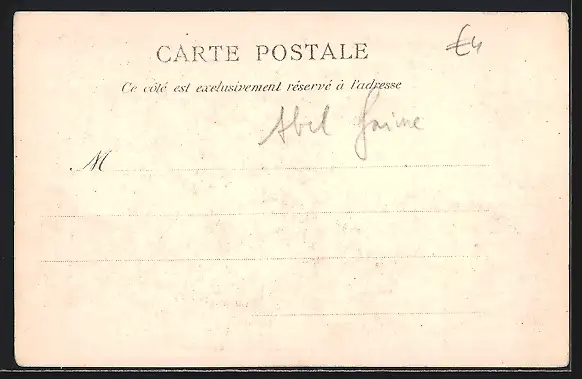 CARTE POSTALE
€4
Ce côté est exclusivement réservé à l'adresse
Abel
M